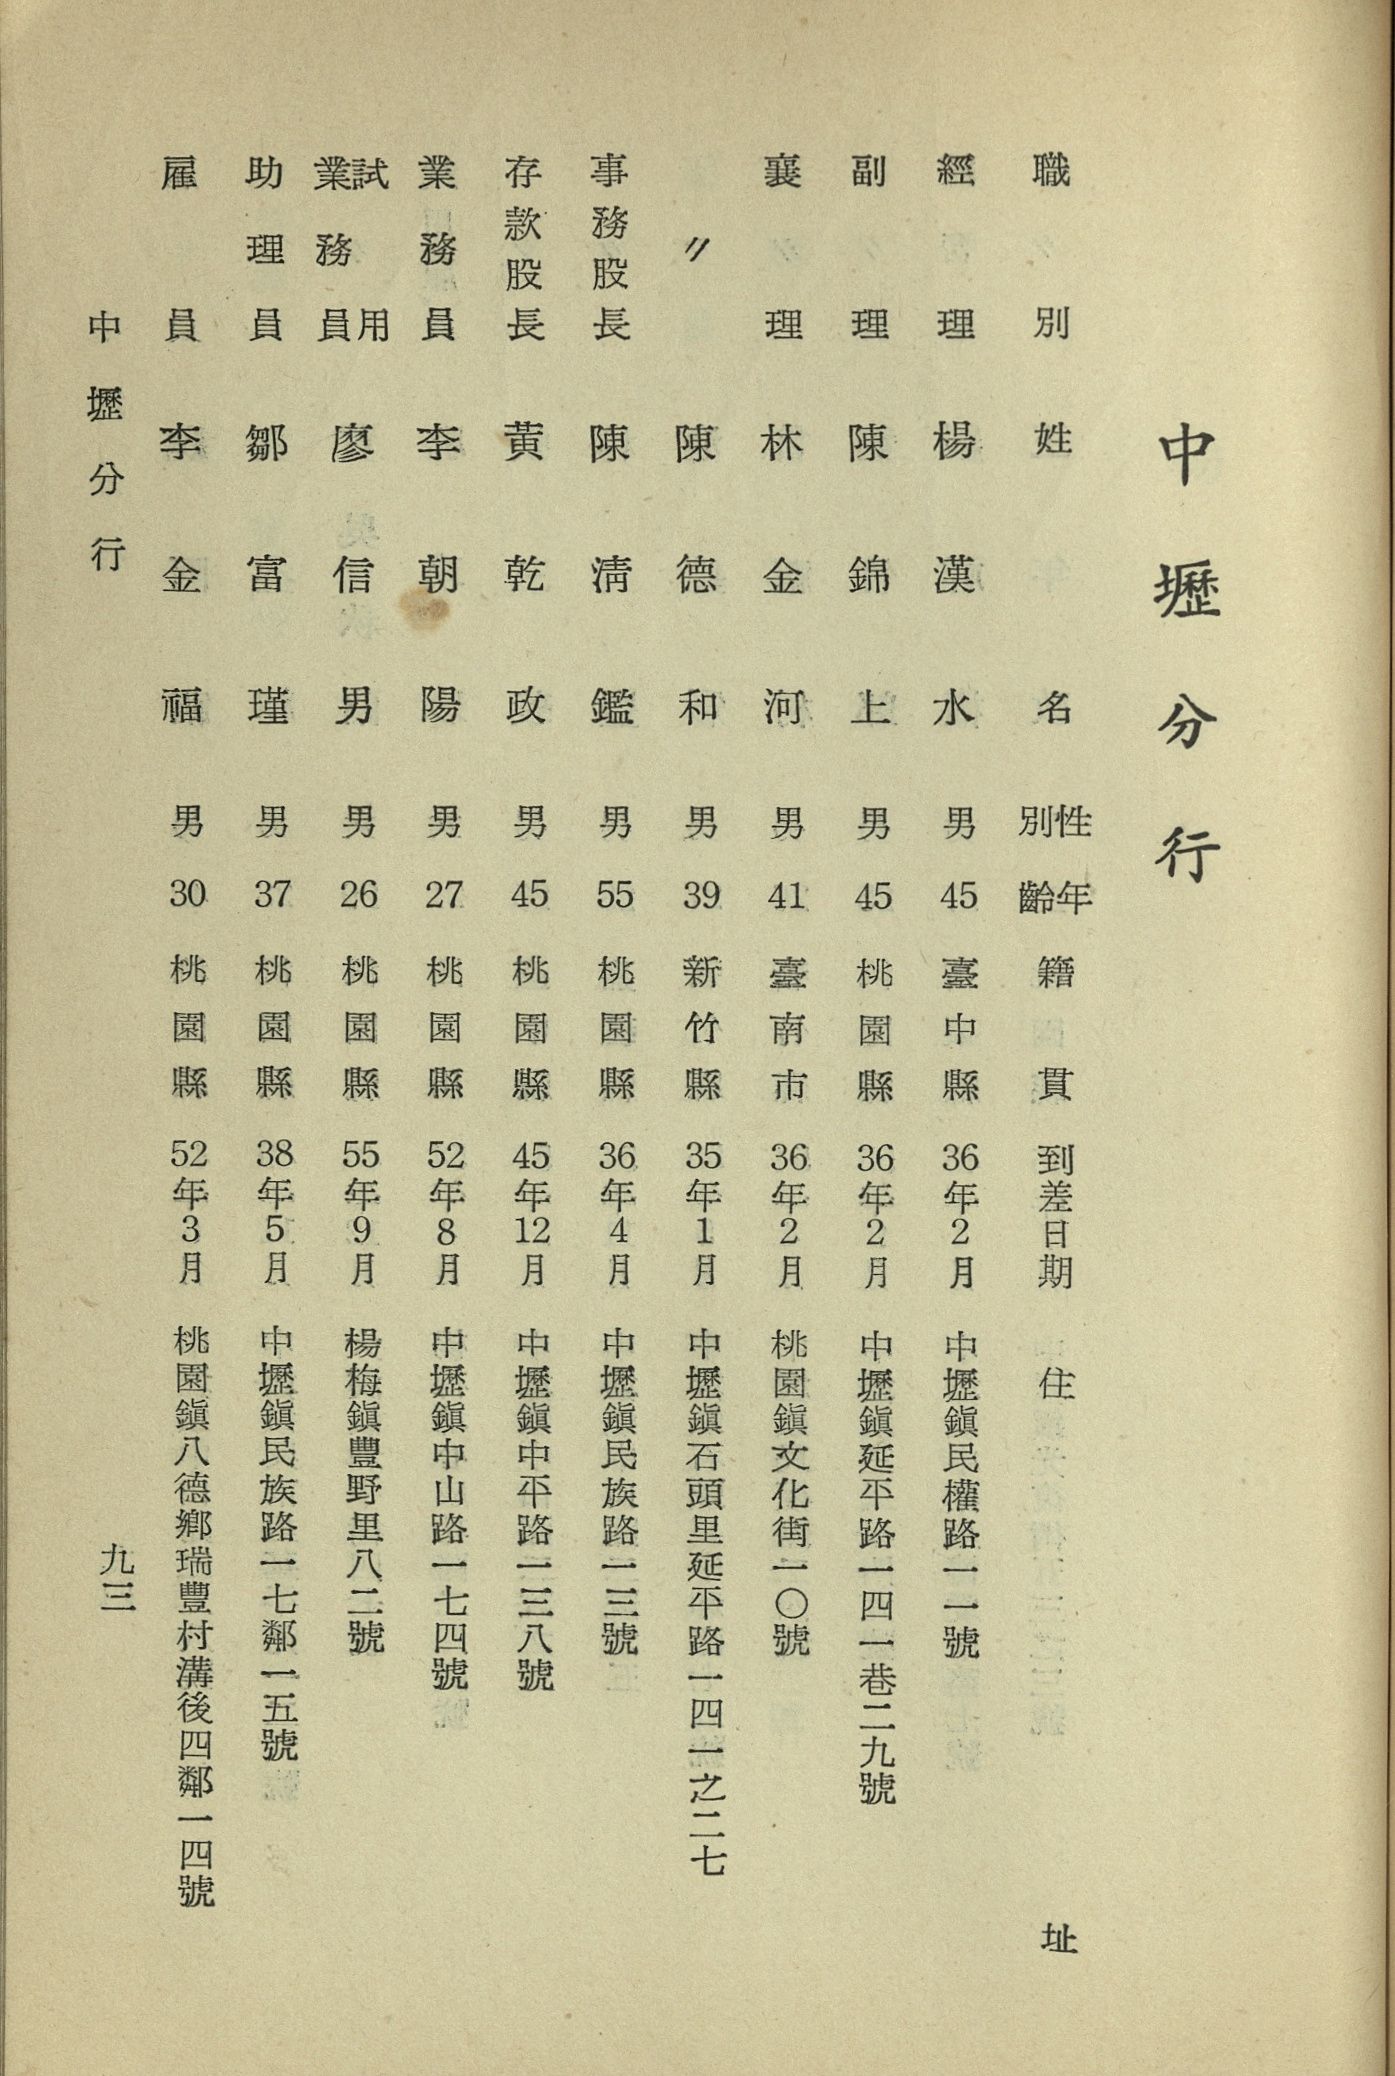 中壢分行
職別 姓名 性別 年齡 籍貫 到差日期 住址
經理 楊漢水 男 45 臺中縣 36年2月 中壢鎭民權路一一號
副理 陳錦上 男 45 桃園縣 36年2月 中壢鎭延平路一四一巷二九號
襄理 林金河 男 41 臺南市 36年2月 桃園鎭文化街一〇號
〃 陳德和 男 39 新竹縣 35年1月 中壢鎭石頭里延平路一四一之二七
事務股長 陳淸鑑 男 55 桃園縣 36年4月 中壢鎭民族路一三號
存款股長 黃乾政 男 45 桃園縣 45年12月 中壢鎭中平路一三八號
業務員 李朝陽 男 27 桃園縣 52年8月 中壢鎭中山路一七四號
試用業務員 廖信男 男 26 桃園縣 55年9月 楊梅鎭豐野里八二號
助理員 鄒富瑾 男 37 桃園縣 38年5月 中壢鎭民族路一七鄰一五號
雇員 李金福 男 30 桃園縣 52年3月 桃園鎭八德鄕瑞豐村溝後四鄰一四號
中壢分行 九三